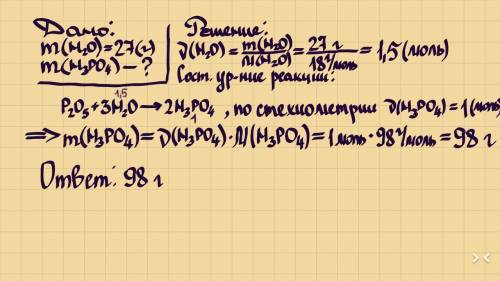 Дано:
m(H₂O)=27(г)
m(H₃PO₄)—?
Решение:
ν(H₂O)=m(H₂O)/M(H₂O)=27 г/18 г/моль=1,5(моль)
Сост. ур-ние реакции:
1,5
P₂O₅+3H₂O→2H₃PO₄, по стехиометрии ν(H₃PO₄)=1(моль)
1
⟹m(H₃PO₄)=ν(H₃PO₄)·M(H₃PO₄)=1моль·98г/моль=98 г
Ответ: 98 г